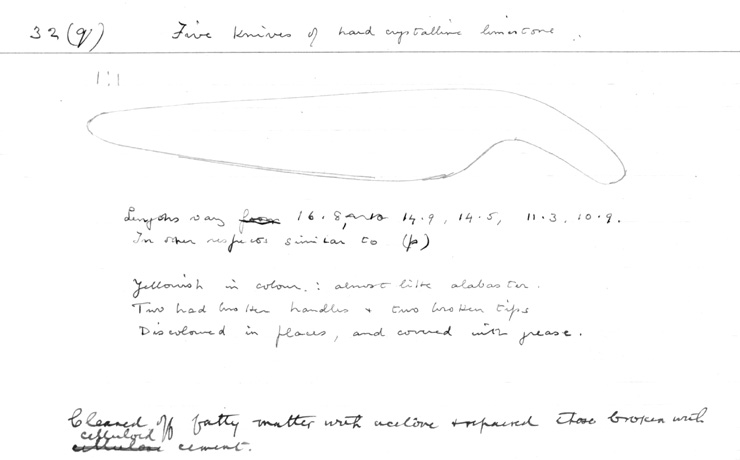 32 (q) Five Knives of hard crystalline limestone.
1:1
Lengths vary from 16.8, 14.9, 14.5, 11.3, 10.9.
In other respects similar to (p)
Yellowish in colour : almost like alabaster.
Two had broken handles + two broken tips
Discoloured in places, and covered with grease.
Cleaned off fatty matter with acetone + repaired those broken with
celluloid
cellulose cement.